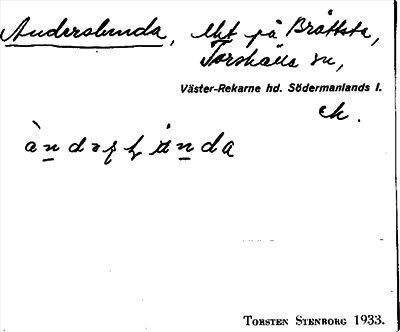 Anderslunda, lht på Bråttsta,
Torshälla sn,
Väster-Rekarne hd. Södermanlands l.
ek.
TORSTEN STENBORG 1933.